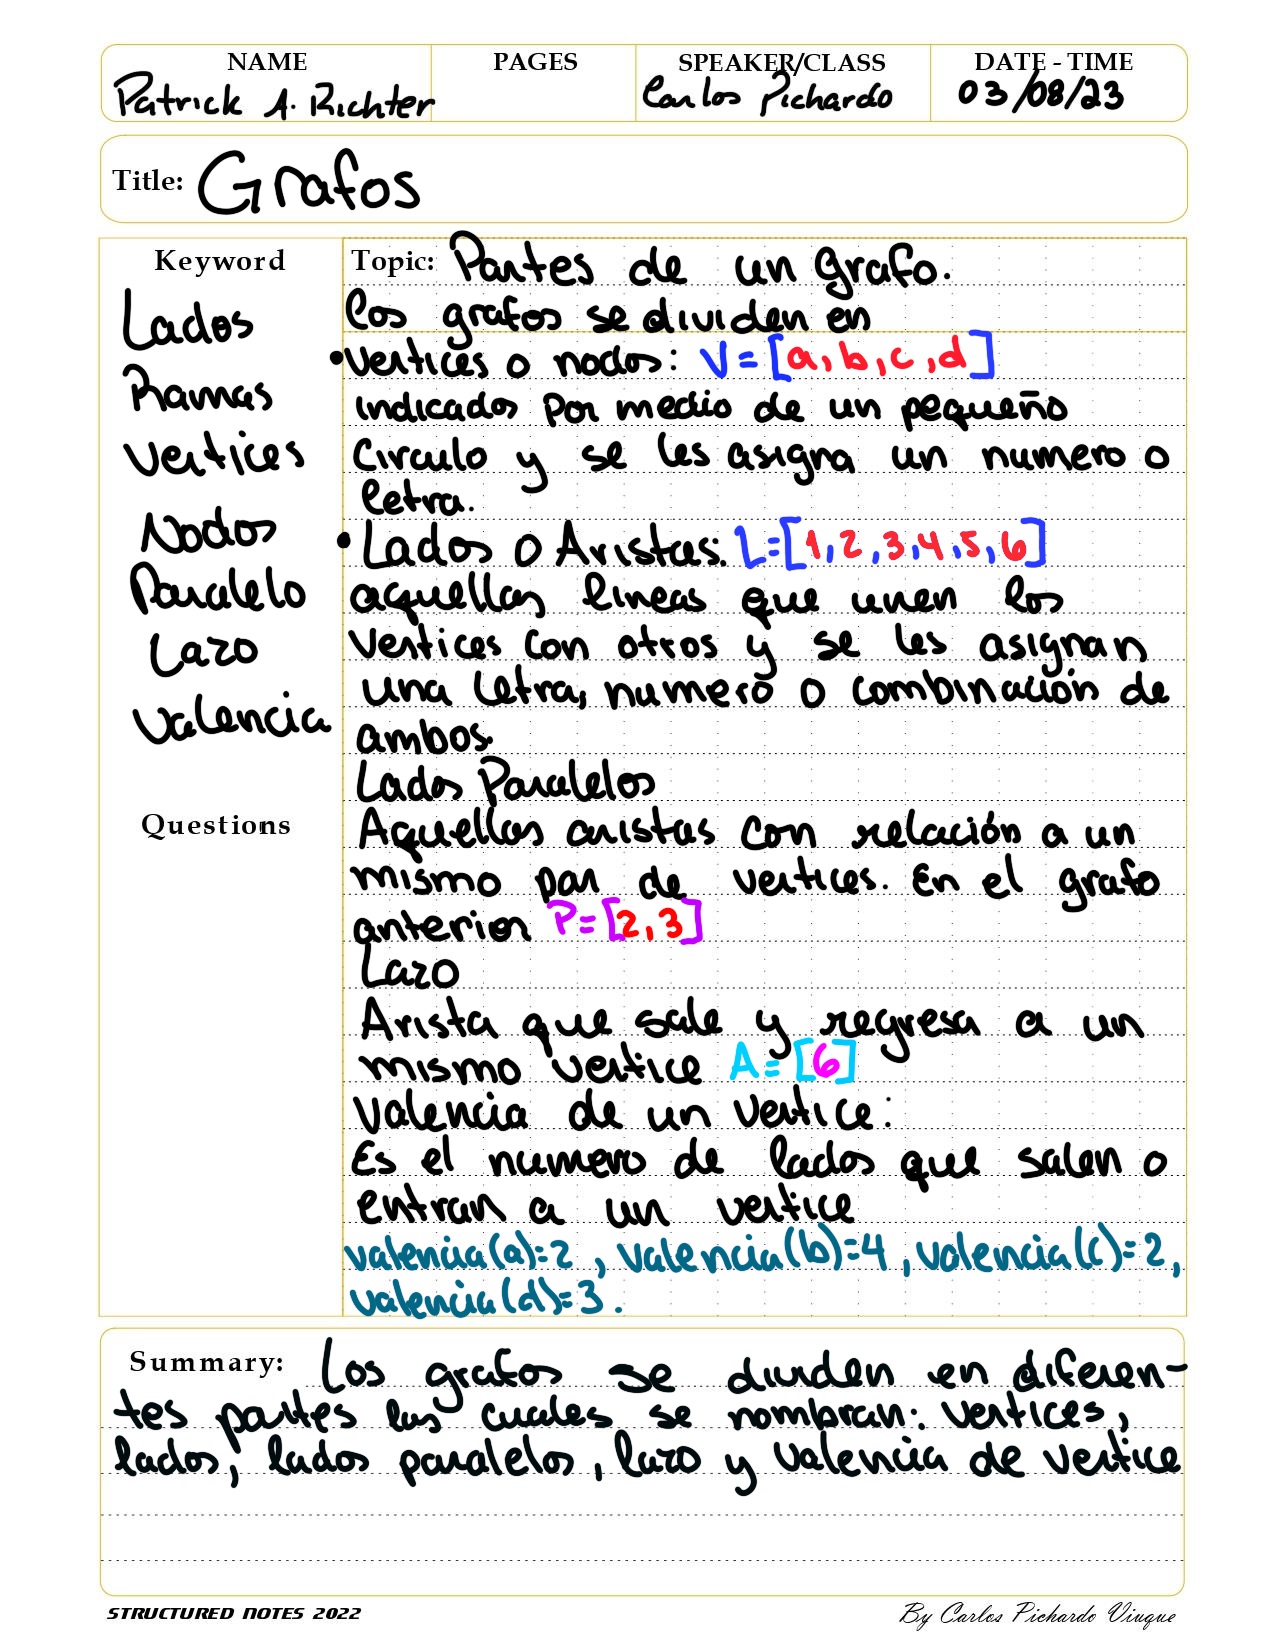 NAME PAGES SPEAKER/CLASS DATE - TIME
Patrick A. Richter Carlos Pichardo 03/08/23
Title: Grafos
Keyword
Lados
Ramas
Vertices
Nodos
Paralelo
Lazo
Valencia
Questions
Topic: Partes de un grafo.
Los grafos se dividen en
•Vertices o nodos: V=[a,b,c,d]
indicados por medio de un pequeño
Circulo y se les asigna un numero o
letra.
•Lados o Aristas: L=[1,2,3,4,5,6]
aquellas lineas que unen los
vertices con otros y se les asignan
una letra, numero o combinación de
ambos.
Lados Paralelos
Aquellas aristas con relación a un
mismo par de vertices. En el grafo
anterior P=[2,3]
Lazo
Arista que sale y regresa a un
mismo vertice A=[6]
Valencia de un vertice:
Es el numero de lados que salen o
entran a un vertice
valencia(a)=2, valencia(b)=4, valencia(c)=2,
valencia(d)=3.
Summary: Los grafos se dividen en diferen-
tes partes las cuales se nombran: vertices,
lados, lados paralelos, lazo y valencia de vertice
STRUCTURED NOTES 2022 By Carlos Pichardo Viuque